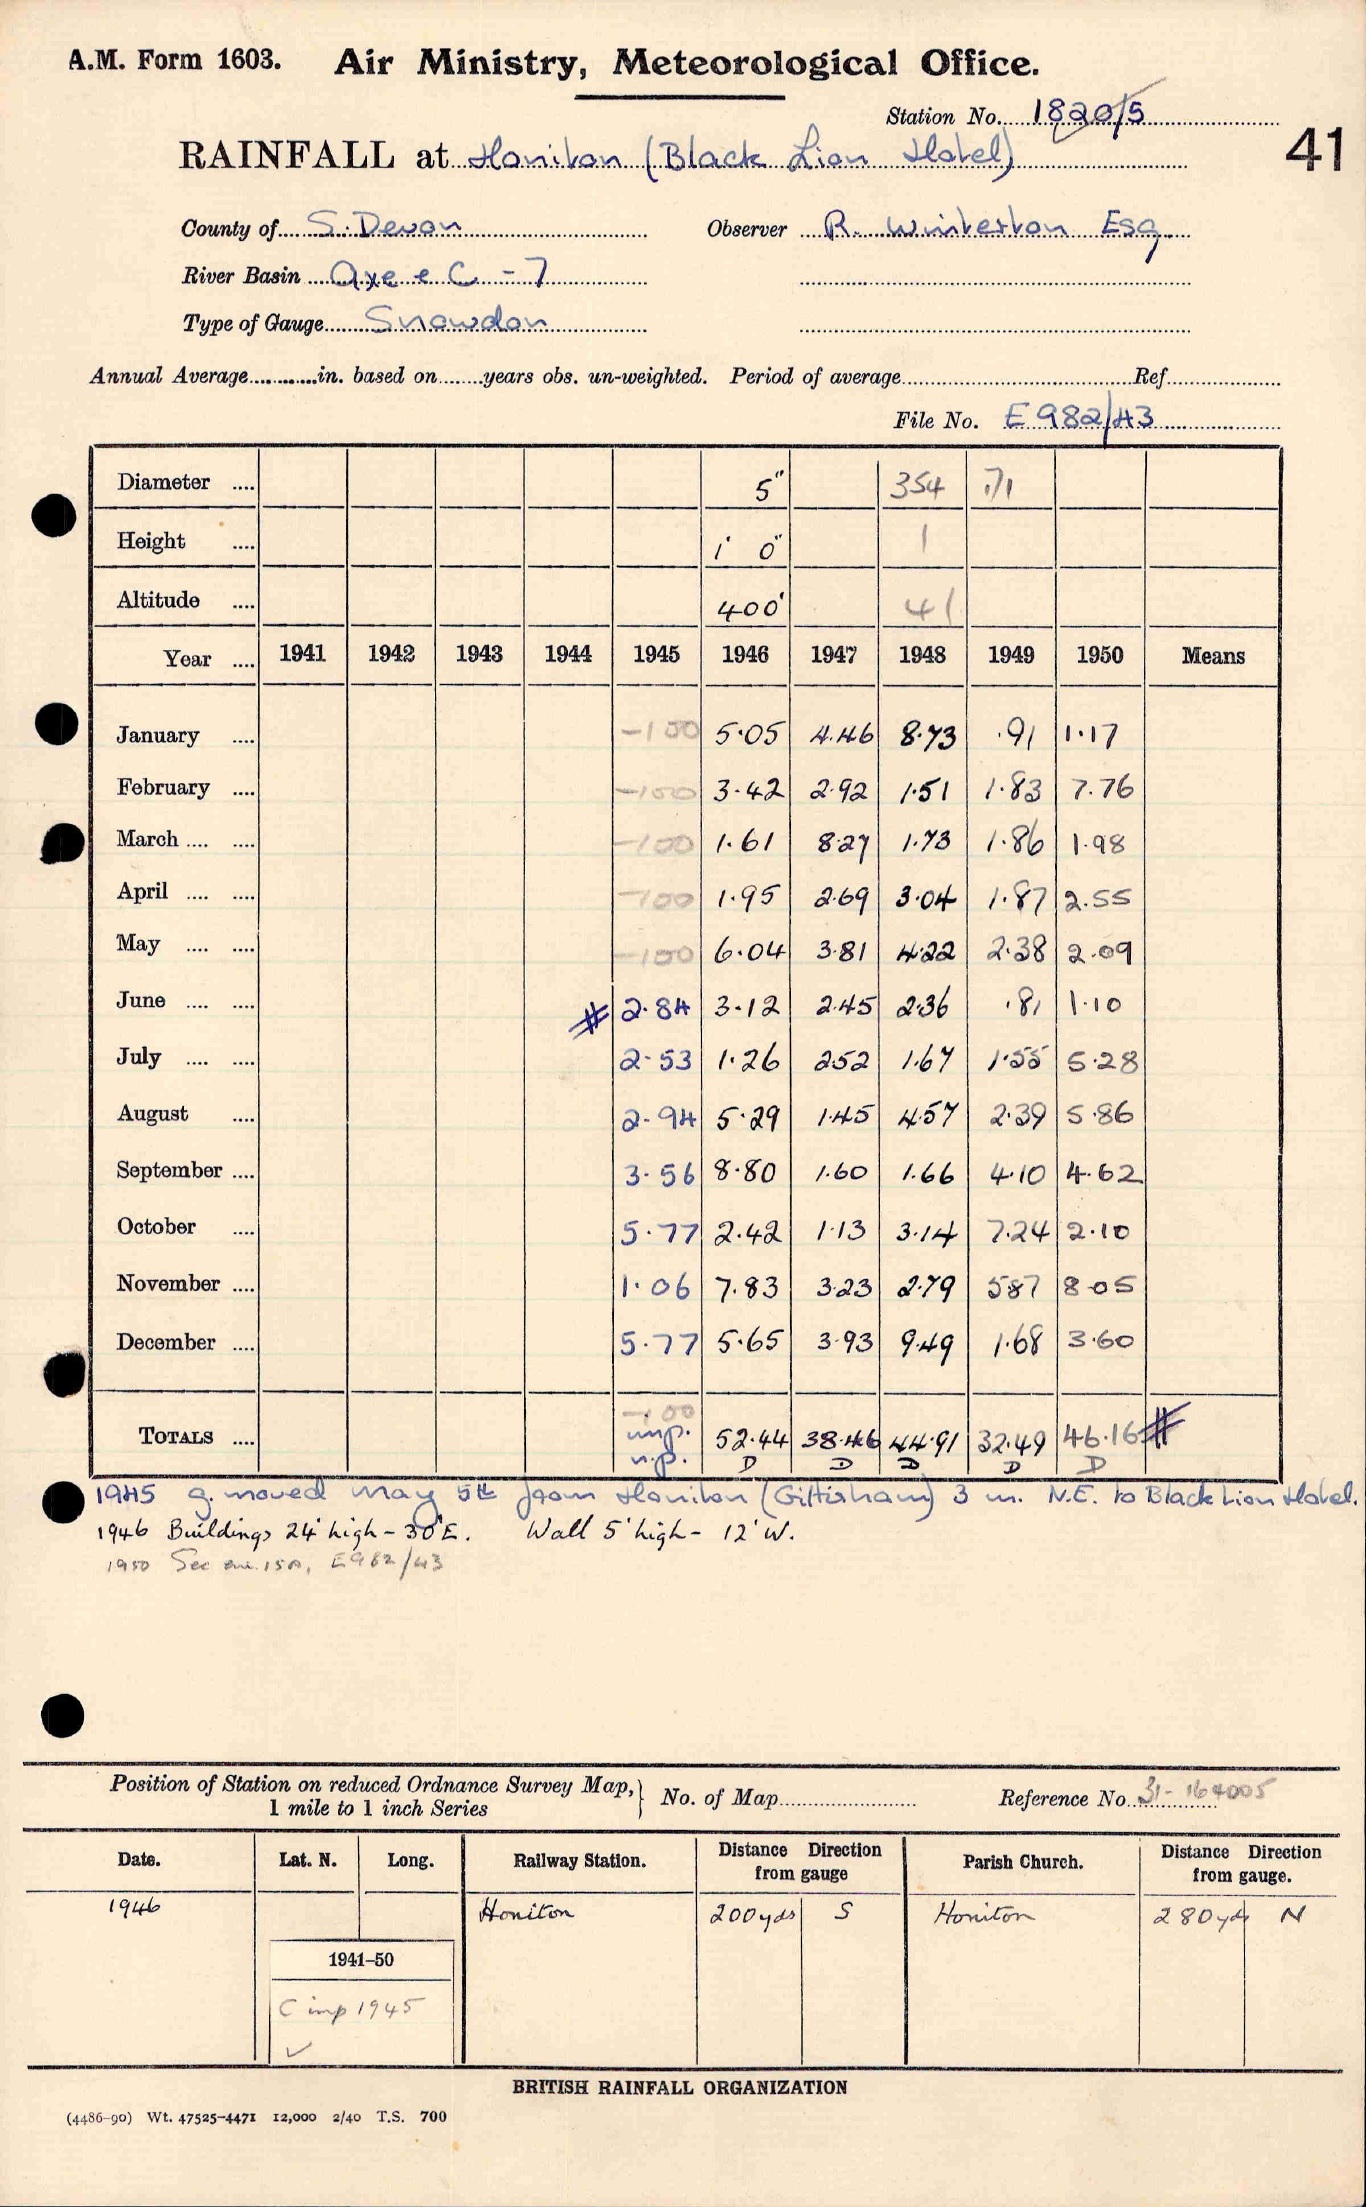 A.M. Form 1603. Air Ministry, Meteorological Office.
Station No. 1820/5
41
RAINFALL at Honiton (Black Lion Hotel)
County of S. Devon Observer R. Winterton Esq.
River Basin Axe e C - 7
Type of Gauge Snowdon
Annual Average............in. based on.......years obs. un-weighted. Period of average..........Ref..........
File No. E 982/43
Diameter .... 5" 354 .71
Height .... 1' 0" 1
Altitude .... 400' 41
Year .... 1941 1942 1943 1944 1945 1946 1947 1948 1949 1950 Means
January .... -100 5.05 4.46 8.73 .91 1.17
February .... -100 3.42 2.92 1.51 1.83 7.76
March .... .... -100 1.61 8.27 1.73 1.86 1.98
April .... .... -100 1.95 2.69 3.04 1.87 2.55
May .... .... -100 6.04 3.81 4.22 2.38 2.09
June .... .... # 2.84 3.12 2.45 2.36 .81 1.10
July .... .... 2.53 1.26 2.52 1.67 1.55 5.28
August .... 2.94 5.29 1.45 4.57 2.39 5.86
September .... 3.56 8.80 1.60 1.66 4.10 4.62
October .... 5.77 2.42 1.13 3.14 7.24 2.10
November .... 1.06 7.83 3.23 2.79 5.87 8.05
December .... 5.77 5.65 3.93 9.49 1.68 3.60
-100
TOTALS .... imp. 52.44 38.46 44.91 32.49 46.16 #
n.p. D D D D D
1945 g. moved May 5th from Honiton (Gittisham) 3 m. N.E. to Black Lion Hotel.
1946 Buildings 24' high - 30' E. Wall 5' high - 12' W.
1950 See 15A, E982/43
Position of Station on reduced Ordnance Survey Map, 1 mile to 1 inch Series } No. of Map.......... Reference No. 31-164005
Date. Lat. N. Long. Railway Station. Distance Direction from gauge Parish Church. Distance Direction from gauge.
1946 Honiton 200 yds S Honiton 280 yds N
1941-50
C imp 1945
✓
BRITISH RAINFALL ORGANIZATION
(4486-90) Wt. 47525-4471 12,000 2/40 T.S. 700